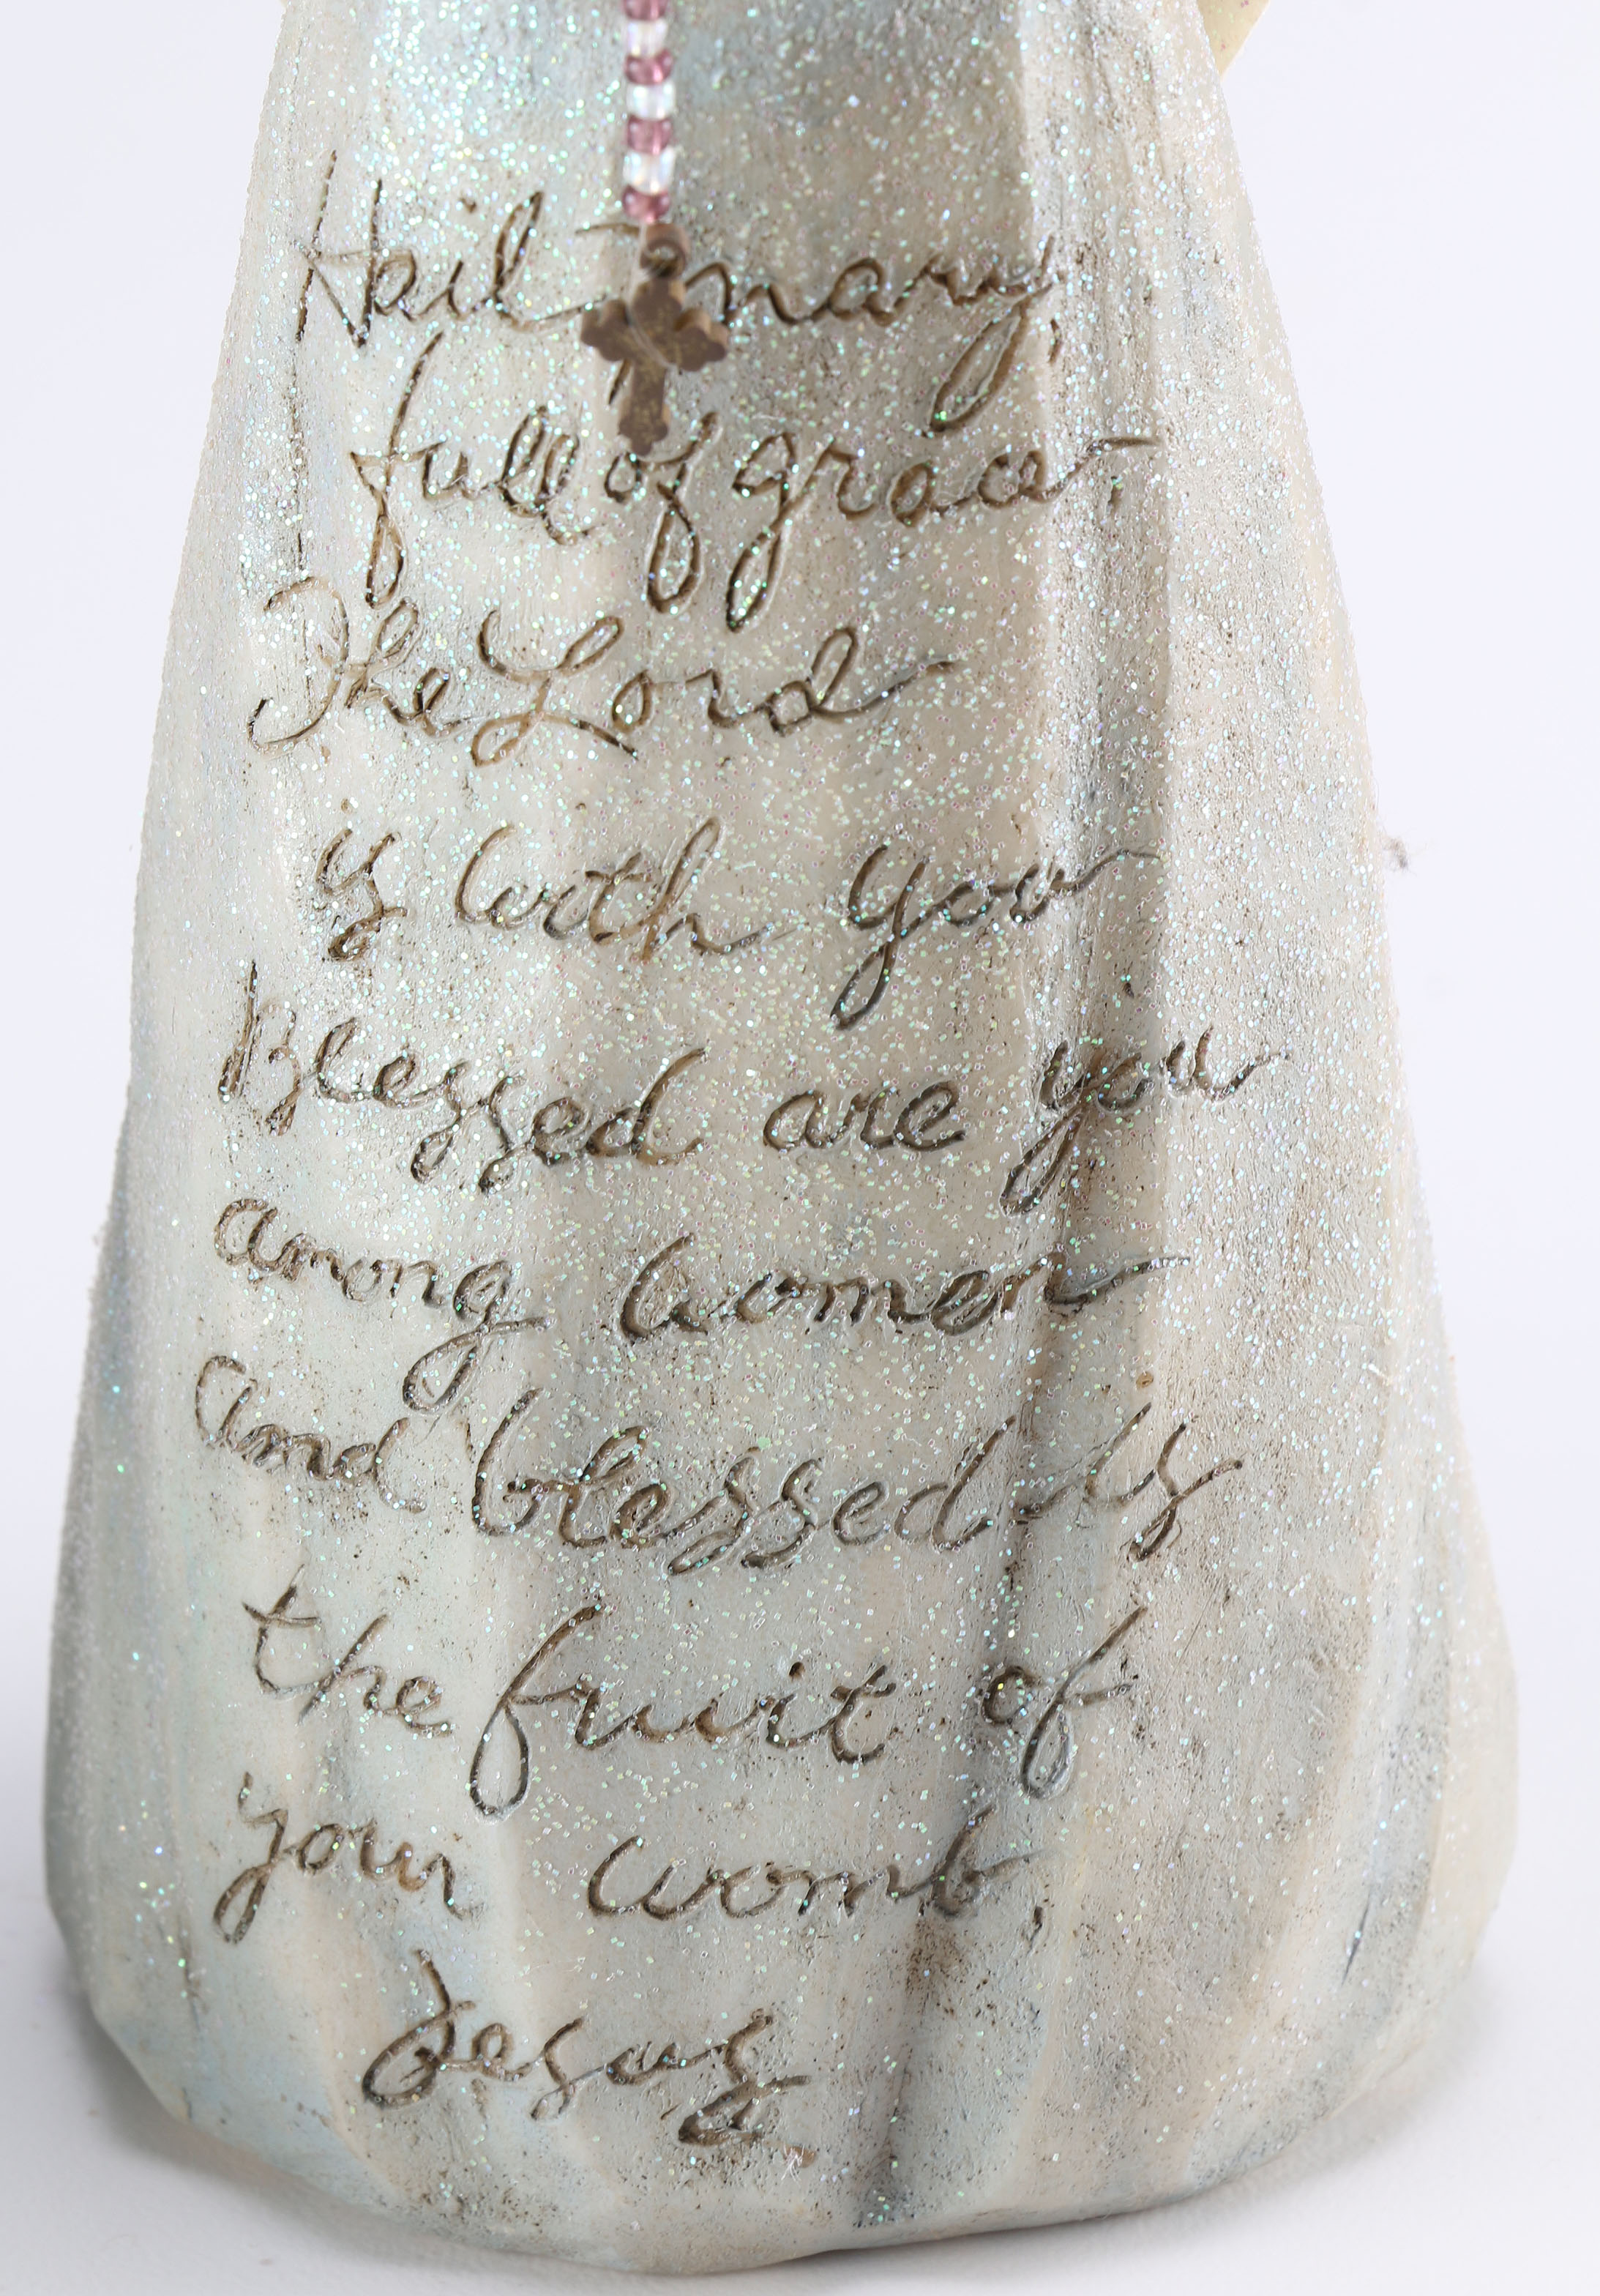 Hail Mary,
full of grace,
The Lord
is with you
Blessed are you
among women
and blessed is
the fruit of
your womb,
Jesus